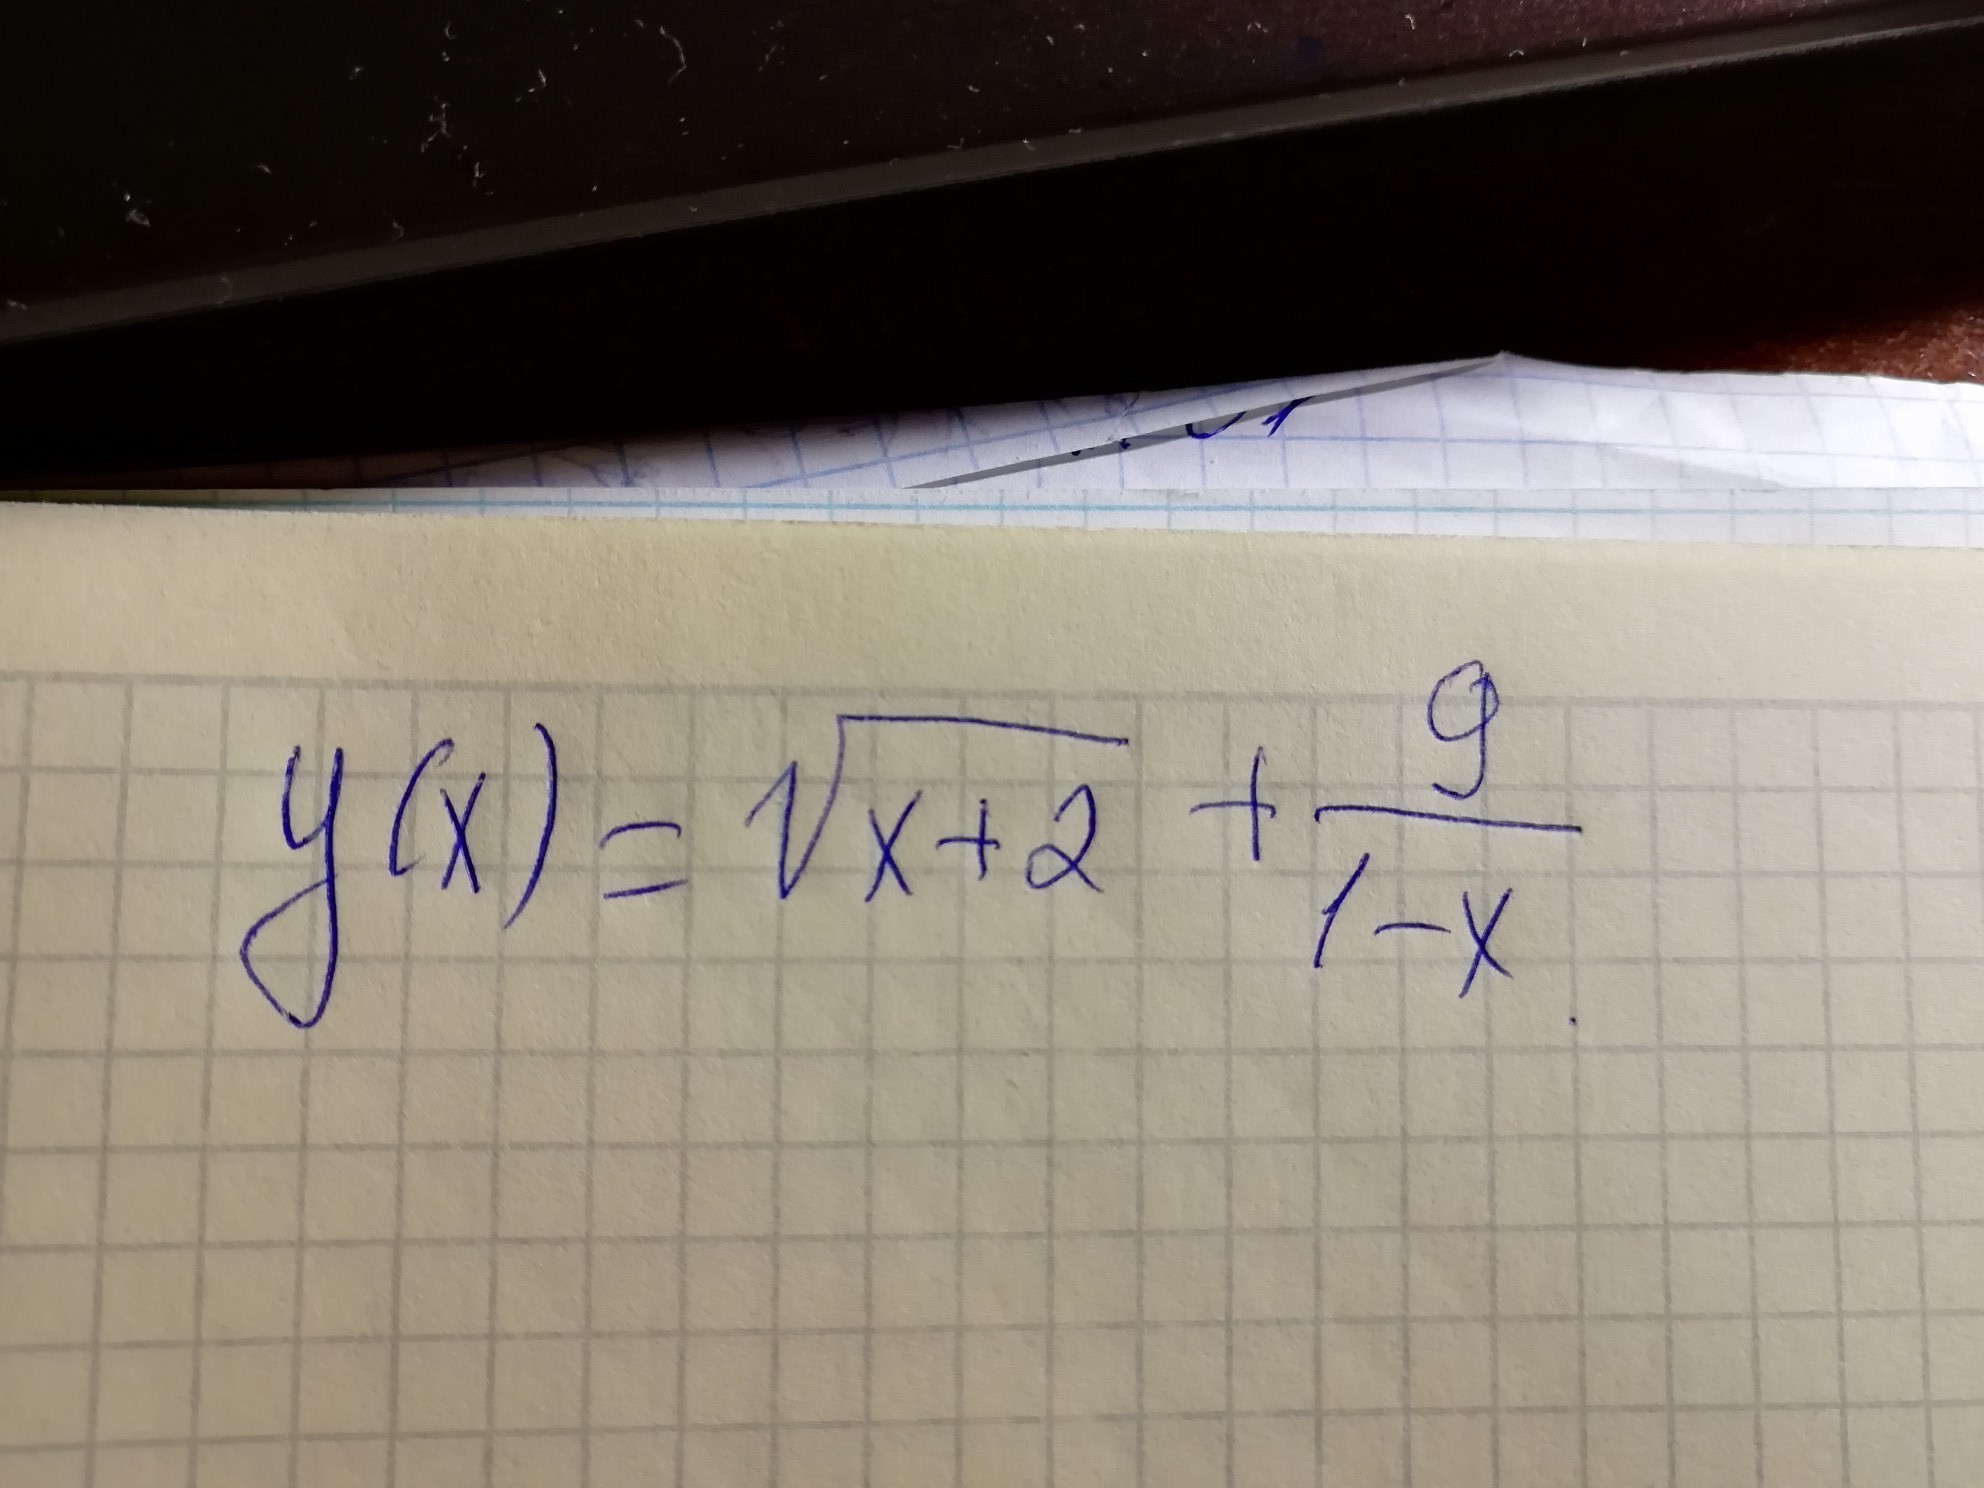 y(x) = √(x+2) + 9/(1-x)